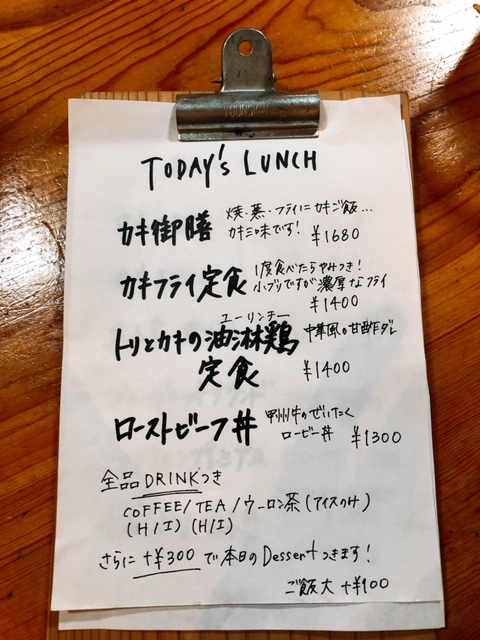 TODAY's LUNCH
カキ御膳 焼・蒸・フライにカキご飯…
カキ三味です! ¥1680
カキフライ定食 1度食べたらやみつき!
小ブリですが濃厚なフライ
¥1400
ユーリンチー
トリとカキの油淋鶏 中華風の甘酢ダレ
定食 ¥1400
ローストビーフ丼 甲州牛のぜいたく
ロービー丼 ¥1300
全品DRINKつき
COFFEE/TEA/ウーロン茶(アイスのみ)
(H/I)(H/I)
さらに+¥300で本日のDessertつきます!
ご飯大 +¥100